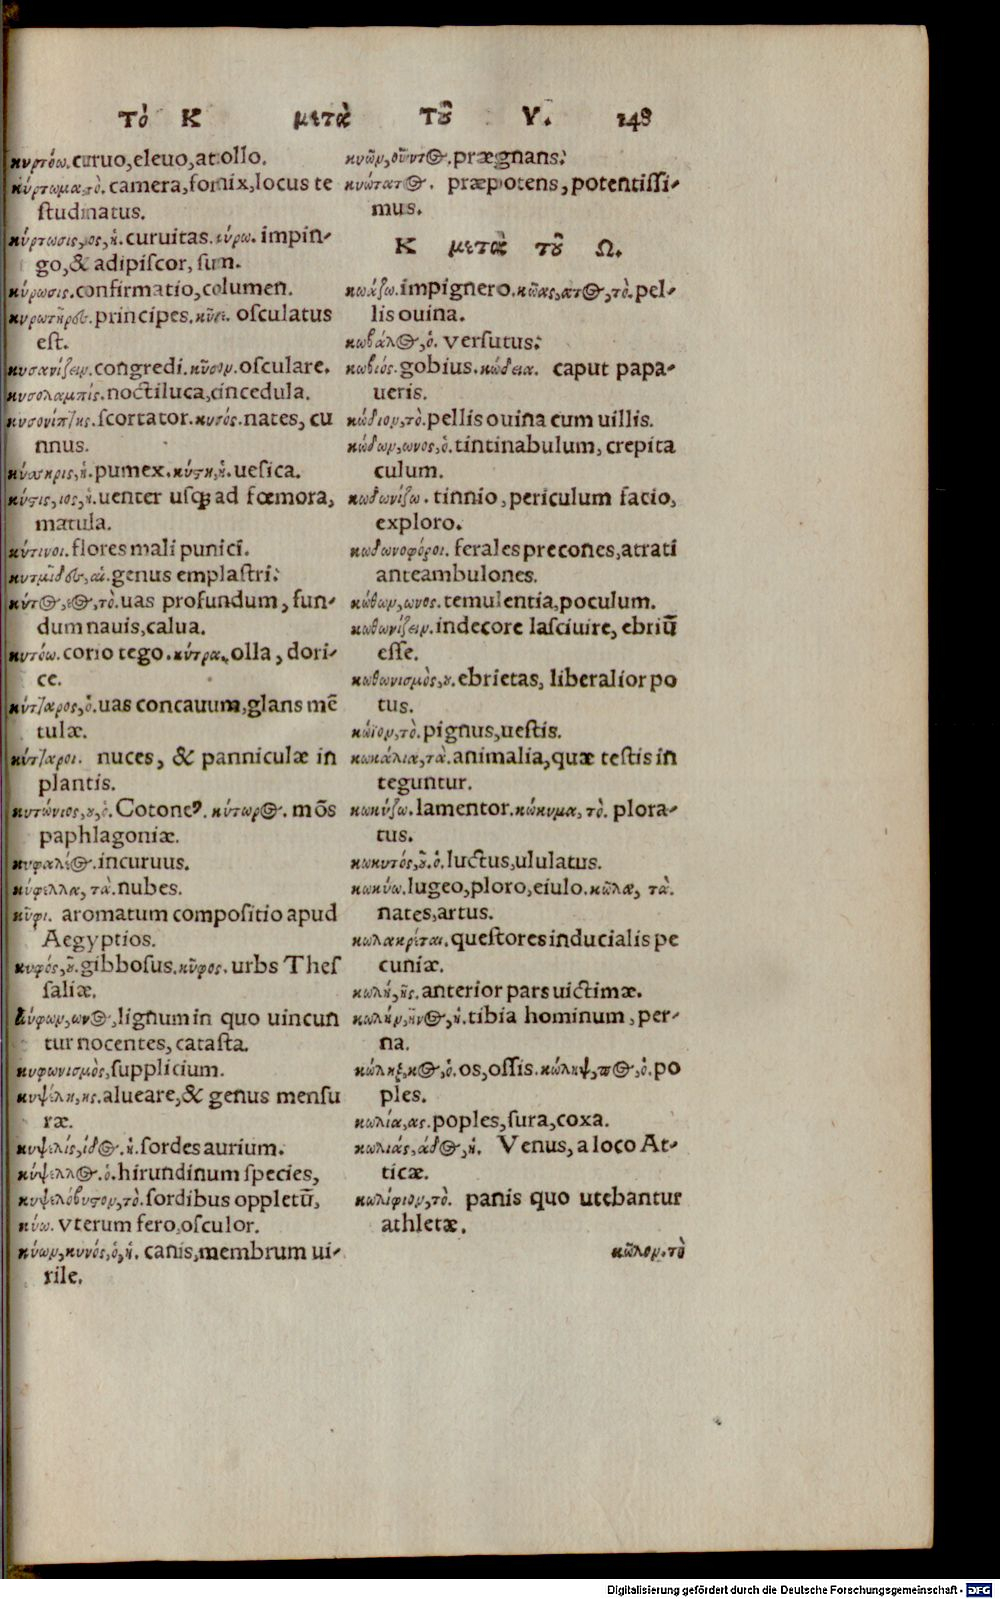 Τὸ Κ μετὰ τοῦ Υ. 148
κυρτόω. curuo, eleuo, attollo.
κύρτωμα, τὸ. camera, fornix, locus te
studinatus.
κύρτωσις, ιος, ἡ. curuitas. κύρω. impin-
go, & adipiscor, sum.
κύρωσις. confirmatio, columen.
κυρωτῆρες. principes. κῦσε. osculatus
est.
κυσανίζειν. congredi. κῦσον. osculare.
κυσολαμπίς. noctiluca, cincedula.
κυσονίπτης. scortator. κυσός. nates, cu
nnus.
pumex. κύστη, ἡ. uesica.
κύστις, ιος, ἡ. uenter usq; ad fœmora,
matula.
κύτινοι. flores mali punici.
κυτμίδες, αἱ. genus emplastri:
κύτος, εος, τὸ. uas profundum, fun-
dum nauis, calua.
κυτόω. corio tego. κύτρα. olla, dori-
ce.
κύτταρος, ὁ. uas concauum, glans mẽ
tulæ.
κύτταροι. nuces, & panniculæ in
plantis.
κυτώνιος, ου, ὁ. Cotoneꝰ. κύτωρος. mõs
paphlagoniæ.
κυφαλέος. incuruus.
κύφελλα, τὰ. nubes.
κῦφι. aromatum compositio apud
Aegyptios.
κυφός, οῦ. gibbosus. κῦφος. urbs Thes
saliæ.
κύφων, ωνος, lignum in quo uincun
tur nocentes, catasta.
κυφωνισμὸς, supplicium.
κυψέλη, ης. alueare, & genus mensu
ræ.
κυψελίς, ίδος. ἡ. sordes aurium.
κύψελλος. ὁ. hirundinum species,
κυψελόβυστον, τὸ. sordibus oppletũ,
κύω. vterum fero, osculor.
κύων, κυνός, ὁ, ἡ. canis, membrum ui-
rile.
κυῶν, οῦντος. prægnans:
κυώτατος. præpotens, potentissi-
mus.
Κ μετὰ τοῦ Ω.
κωάζω. impignero. κῶας, ατος, τὸ. pel-
lis ouina.
κωβάλος, ὁ. versutus:
κωβιός. gobius. κώδεια. caput papa-
ueris.
κώδιον, τὸ. pellis ouina cum uillis.
κώδων, ωνος, ὁ. tintinabulum, crepita
culum.
κωδωνίζω. tinnio, periculum facio,
exploro.
κωδωνοφόροι. ferales precones, atrati
anteambulones.
κώθων, ωνος. temulentia, poculum.
κωθωνίζειν. indecore lasciuire, ebriũ
esse.
κωθωνισμὸς, ου. ebrietas, liberalior po
tus.
κώϊον, τὸ. pignus, uestis.
κωκάλια, τὰ. animalia, quæ testis in
teguntur.
κωκύζω. lamentor. κώκυμα, τὸ. plora-
tus.
κωκυτός, οῦ. ὁ. luctus, ululatus.
κωκύω. lugeo, ploro, eiulo. κῶλα, τὰ.
nates, artus.
κωλακρέται. questores inducialis pe
cuniæ.
κωλή, ῆς. anterior pars uictimæ.
κωλήν, ῆνος, ἡ. tibia hominum, per-
na.
κώληξ, κος, ὁ. os, ossis. κώληψ, πος, ὁ. po
ples.
κωλία, ας. poples, sura, coxa.
κωλιάς, άδος, ἡ. Venus, a loco At-
ticæ.
κωλίφιον, τὸ. panis quo utebantur
athletæ.
κῶλον. τὸ
Digitalisierung gefördert durch die Deutsche Forschungsgemeinschaft - DFG